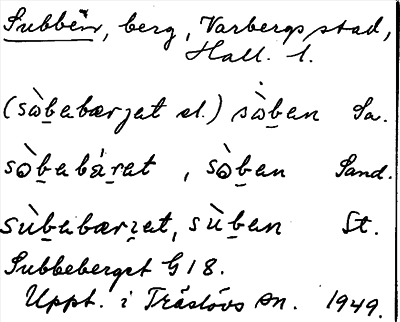 Subben, berg, Varbergs stad,
Hall. l.
(sò̱babærjat el.) sò̱ban Sa.
sò̱babá̱rat, sò̱ban Sand.
sùbabærjat, sùban St.
Subbeberget G 18.
Uppt. i Träslövs sn. 1949.